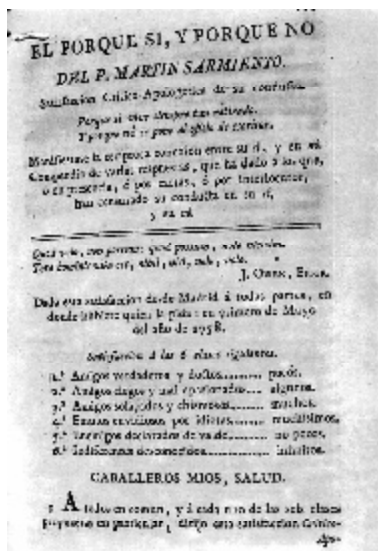 EL PORQUE SI, Y PORQUE NO
DEL P. MARTIN SARMIENTO.
Satisfaccion Critico-Apologetica de su conducta.
Porque si vivir siempre tan retirado.
Y porque no se pone al oficio de escritor.
Manifiestase la reciproca conexion entre su sí, y su nó
Compendio de varias respuestas, que ha dado a los que,
o en presencia, ó por cartas, ó por interlocutor,
han censurado su conducta en su sí,
y su nó
J. Owen, Epigr.
Dada esta satisfaccion desde Madrid á todas partes, en
donde hubiere quien la pida: en primero de Mayo
del año de 1758.
Satisfaccion á las 6 clases siguientes.
1.ª Amigos verdaderos y doctos......... pocos.
2.ª Amigos ciegos y mal apasionados.... algunos.
3.ª Amigos solapados y chismosos....... muchos.
4.ª Enemigos envidiosos por idiotas....... muchísimos.
5.ª Enemigos declarados de valde....... no pocos.
6.ª Indiferentes desconocidos.......... infinitos.
CABALLEROS MIOS, SALUD.
1 A todos en comun, y á cada uno de las seis clases
propuestas en particular, dirijo esta satisfaccion Critico-
Apo-